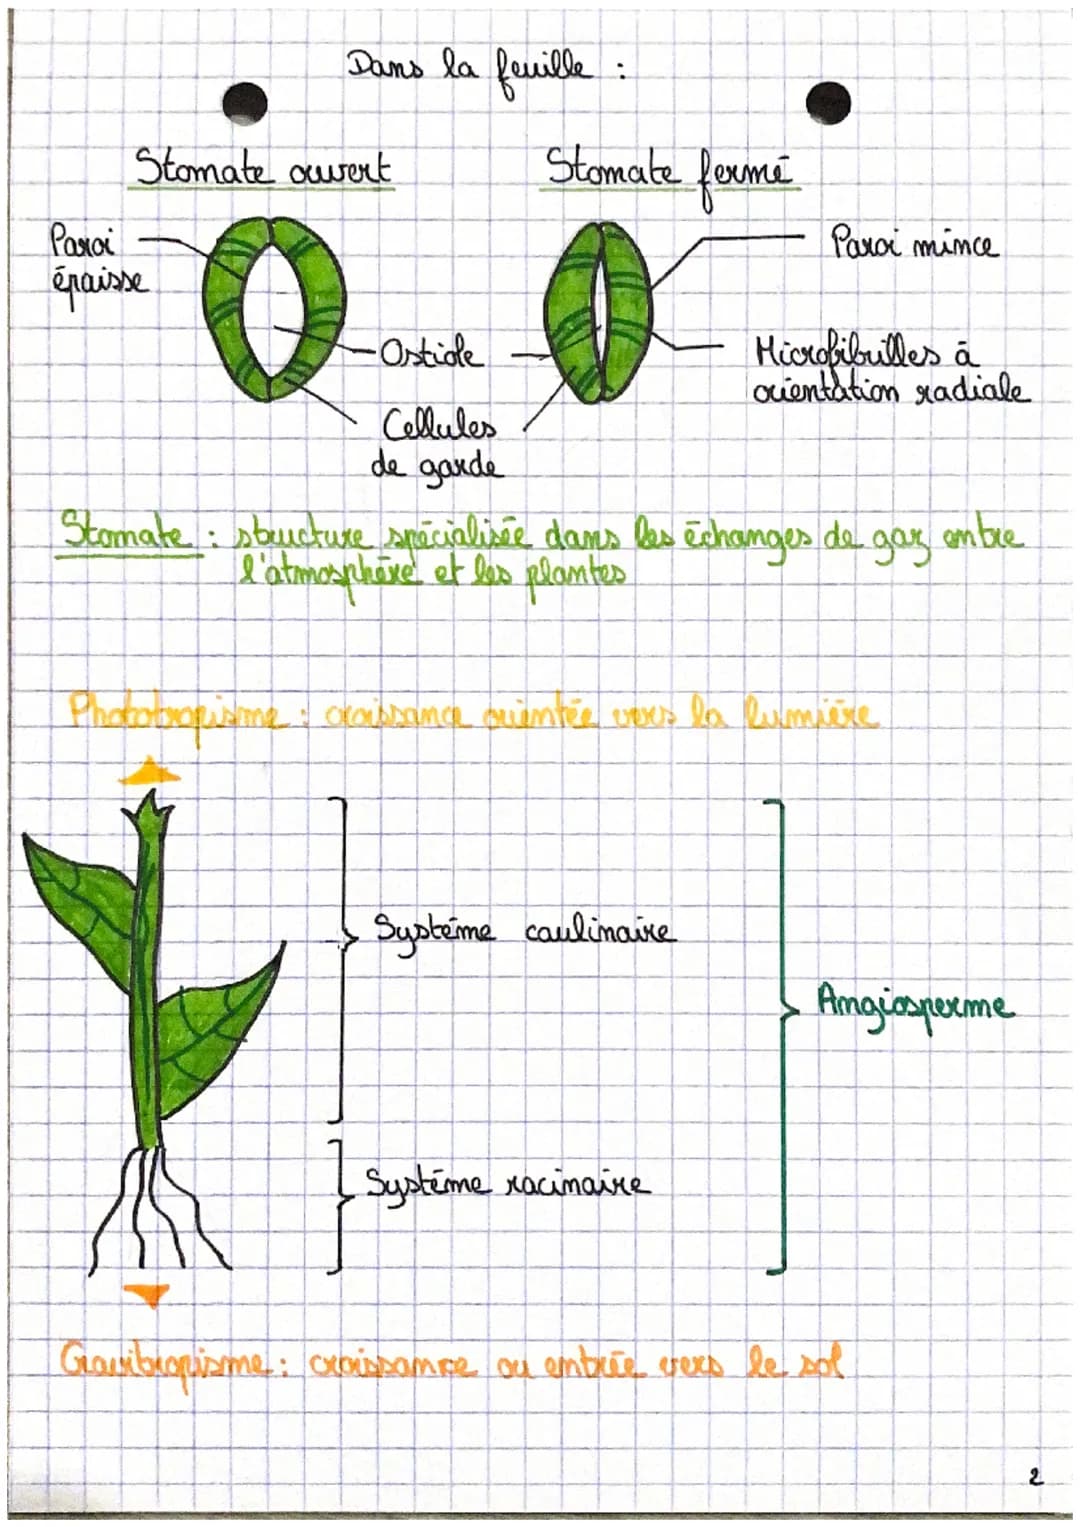 Dans la feuille :
Stomate ouvert
Stomate fermé
Paroi
épaisse
Paroi mince
Ostiole
Microfibrilles à
orientation radiale
Cellules
de garde
Stomate : structure spécialisée dans les échanges de gaz entre
l'atmosphère et les plantes
Phototropisme : croissance orientée vers la lumière
Système caulinaire
Angiosperme
Système racinaire
Gravitropisme : croissance ou entrée vers le sol
2